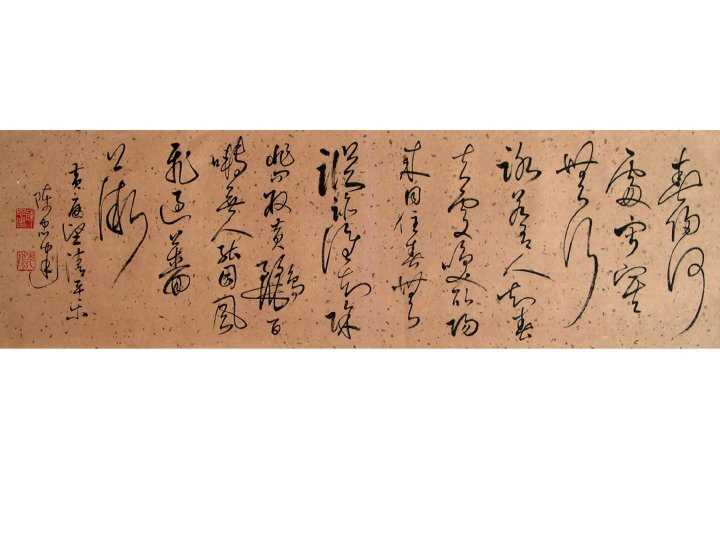 春歸何
處寂寞
無行
路若有人知春
去處喚取歸
來同住春無
蹤跡誰知除
非問取黃鸝百
囀無人能因風
飛過薔
薇
黃庭堅清平樂
陳